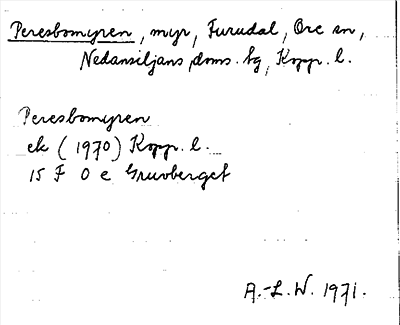 Peresbomyren, myr, Furudal, Ore sn,
Nedansiljans doms. bg, Kopp. l.
Peresbomyren
ek (1970) Kopp. l.
15 F 0 e Gruvberget
A.-L. W. 1971.